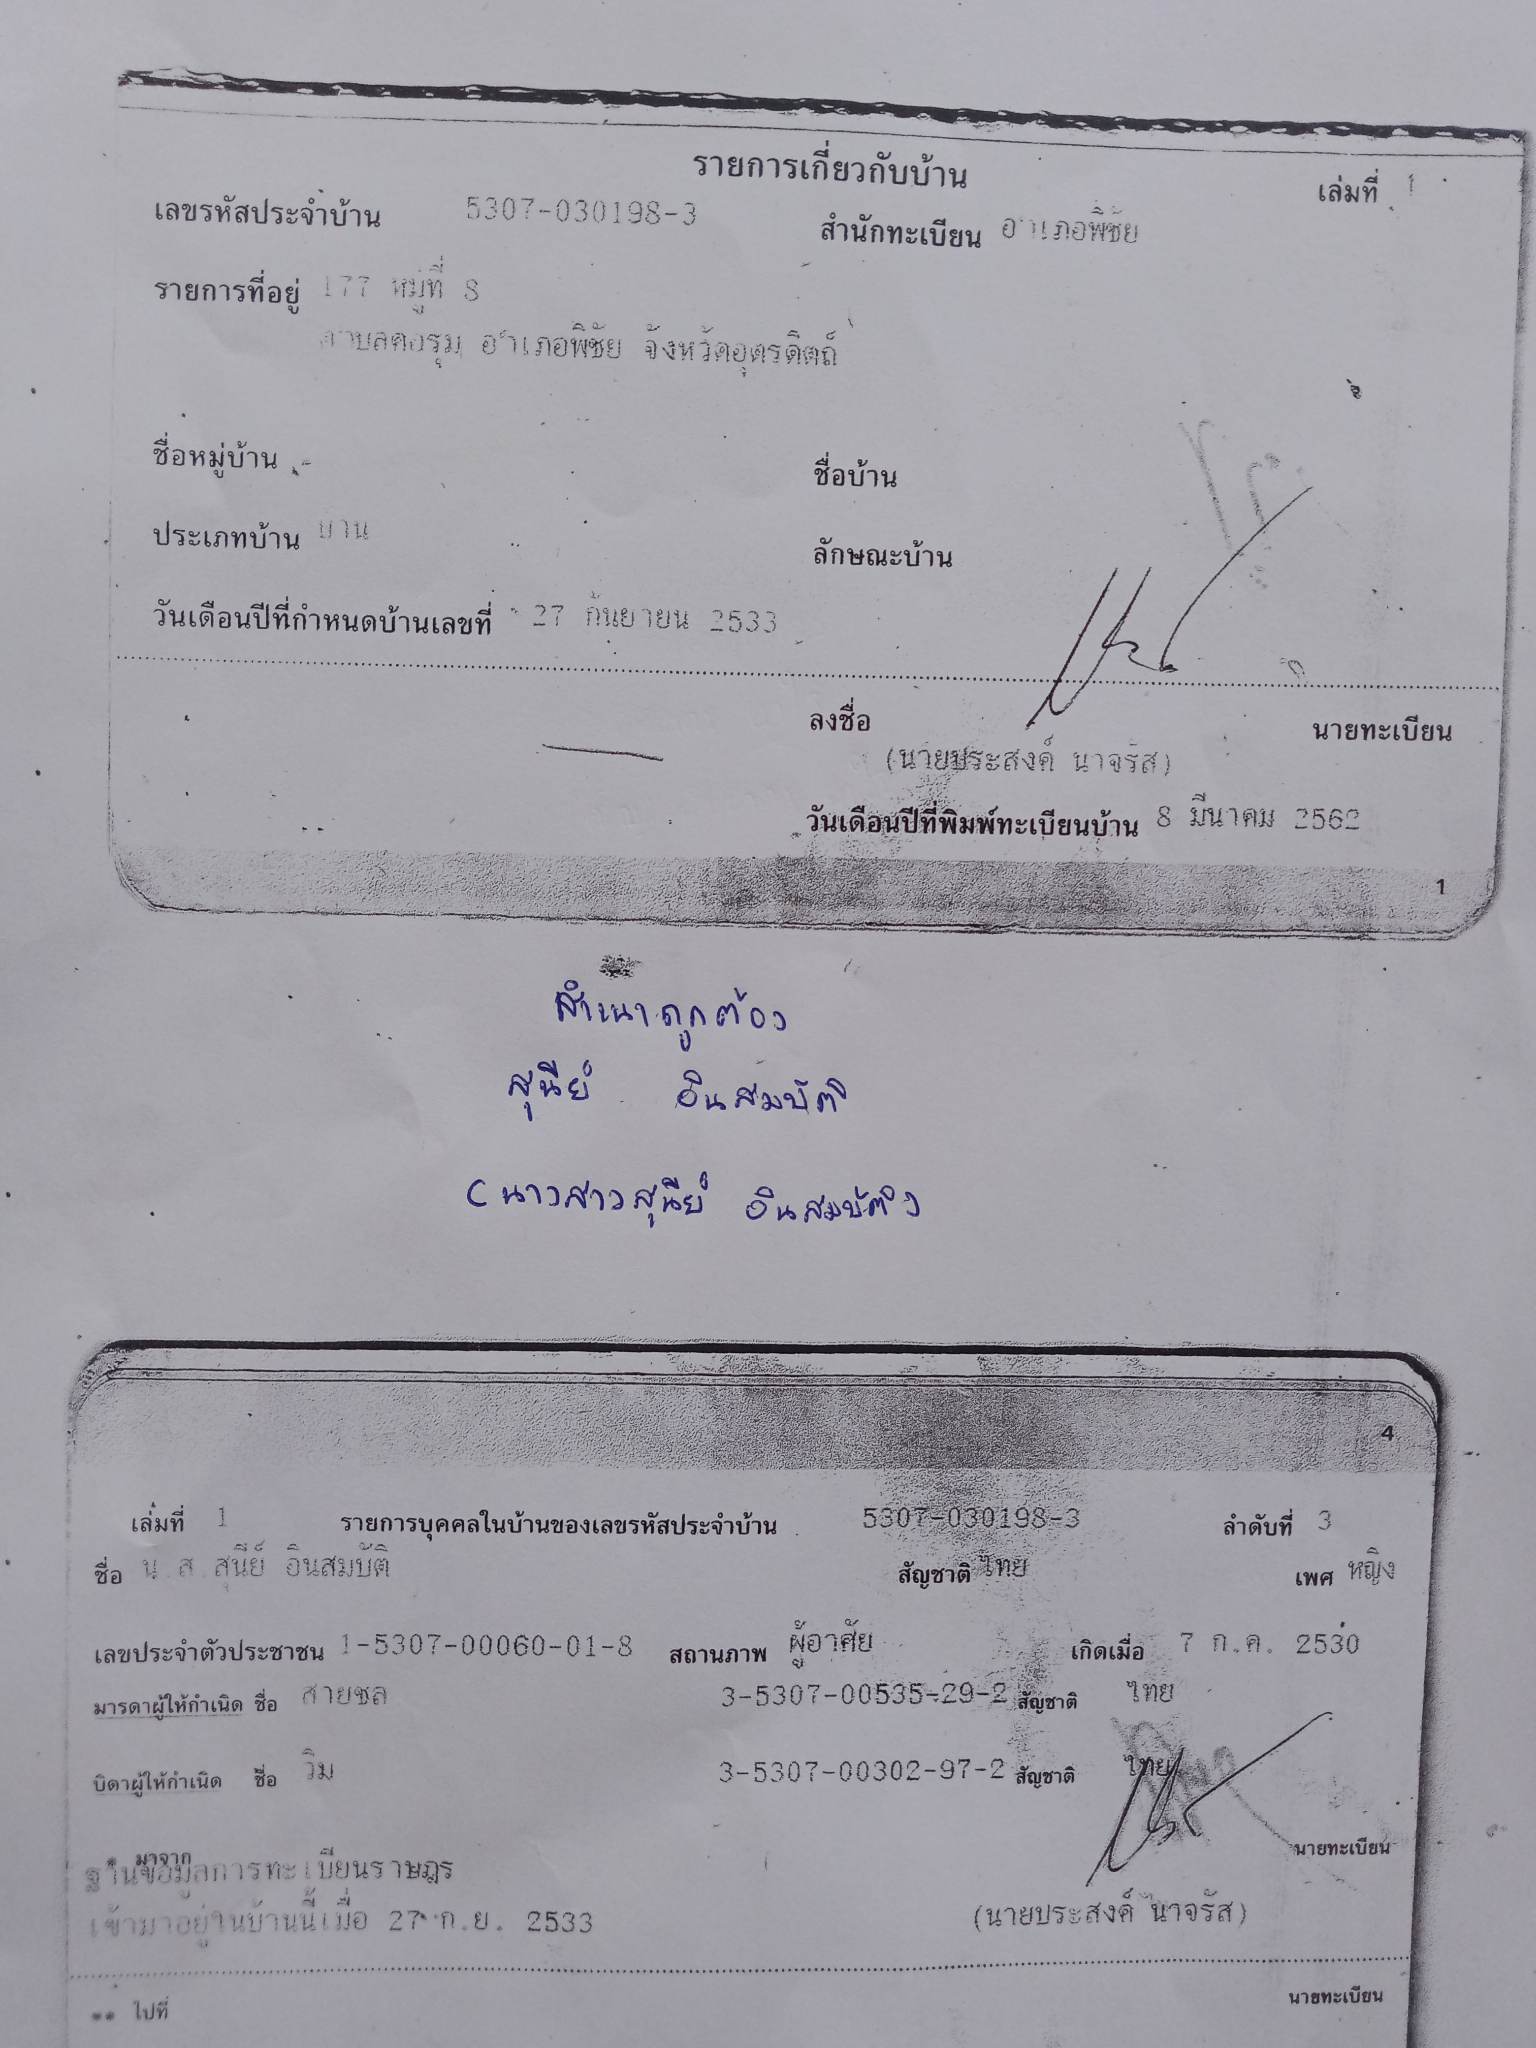 รายการเกี่ยวกับบ้าน เล่มที่ 1
เลขรหัสประจำบ้าน 5307-030198-3 สำนักทะเบียน อำเภอพิชัย
รายการที่อยู่ 177 หมู่ที่ 8
ตำบลคอรุม อำเภอพิชัย จังหวัดอุตรดิตถ์
ชื่อหมู่บ้าน - ชื่อบ้าน
ประเภทบ้าน บ้าน ลักษณะบ้าน
วันเดือนปีที่กำหนดบ้านเลขที่ 27 กันยายน 2533
ลงชื่อ นายทะเบียน
(นายประสงค์ นาจรัส)
วันเดือนปีที่พิมพ์ทะเบียนบ้าน 8 มีนาคม 2562
1
สำเนาถูกต้อง
สุนีย์ อินสมบัติ
(นางสาวสุนีย์ อินสมบัติ)
4
เล่มที่ 1 รายการบุคคลในบ้านของเลขรหัสประจำบ้าน 5307-030198-3 ลำดับที่ 3
ชื่อ น.ส.สุนีย์ อินสมบัติ สัญชาติ ไทย เพศ หญิง
เลขประจำตัวประชาชน 1-5307-00060-01-8 สถานภาพ ผู้อาศัย เกิดเมื่อ 7 ก.ค. 2530
มารดาผู้ให้กำเนิด ชื่อ สายชล 3-5307-00535-29-2 สัญชาติ ไทย
บิดาผู้ให้กำเนิด ชื่อ วิม 3-5307-00302-97-2 สัญชาติ ไทย
* มาจาก นายทะเบียน
ฐานข้อมูลการทะเบียนราษฎร
เข้ามาอยู่ในบ้านนี้เมื่อ 27 ก.ย. 2533 (นายประสงค์ นาจรัส)
** ไปที่ นายทะเบียน